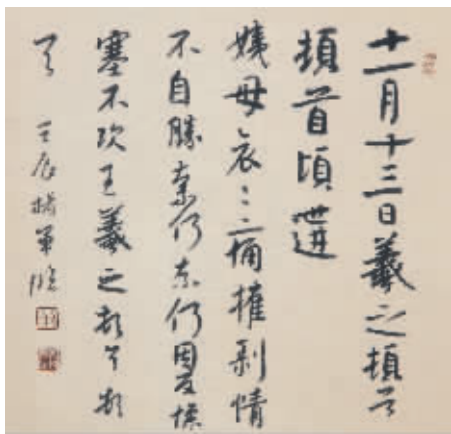 十一月十三日羲之頓首
頓首頃遘
姨母哀〻痛摧剝情
不自勝奈何奈何因反慘
塞不次王羲之頓首頓
首 壬辰楊軍臨